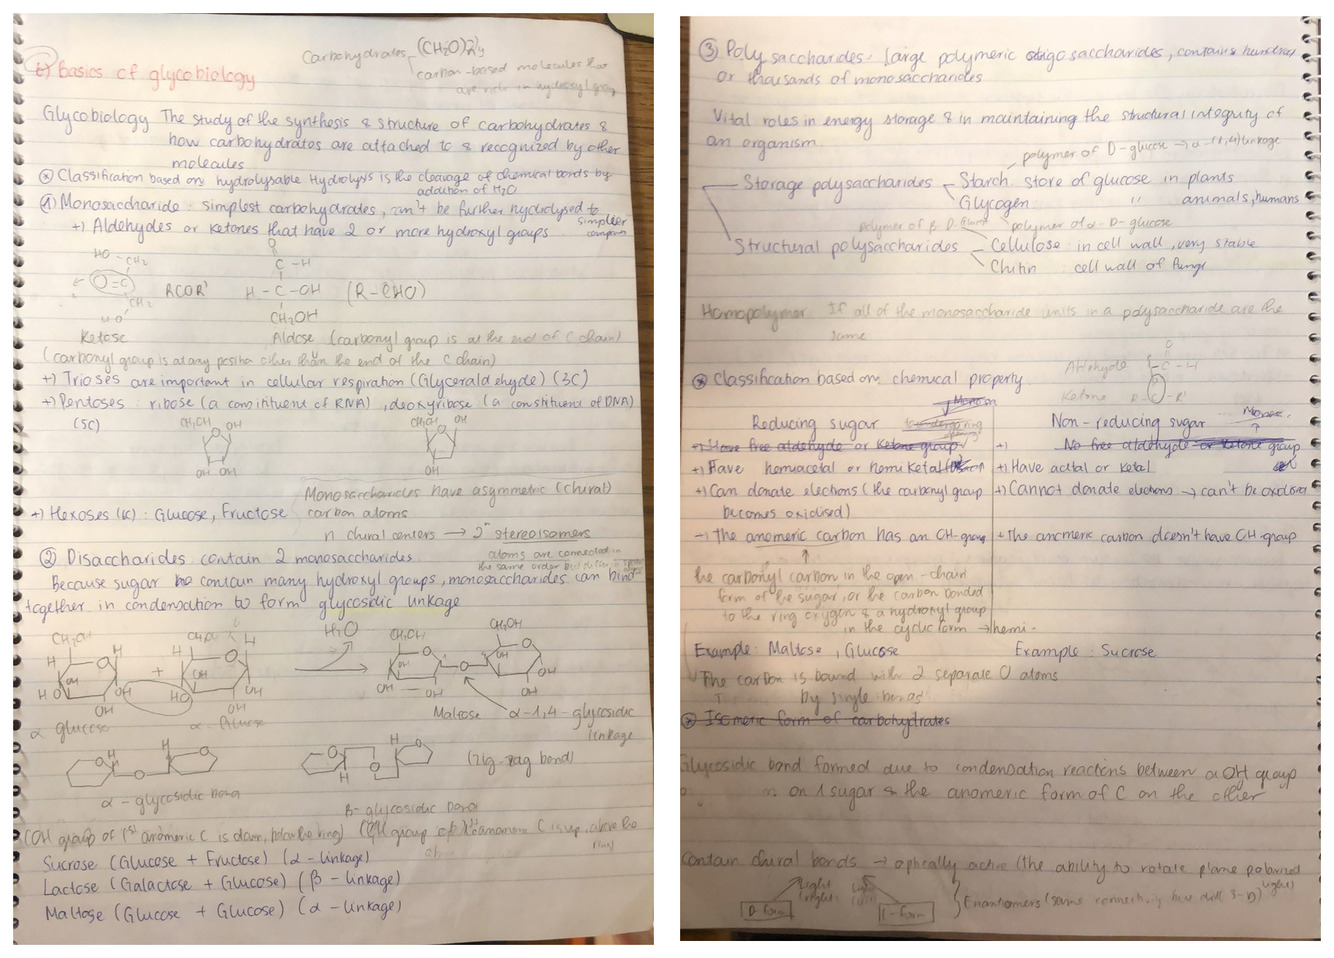 Carbohydrates (CH2O)
carbon-based molecules that
are rich in hydroxyl group
Basics of glycobiology
Glycobiology The study of the synthesis & structure of carbohydrates &
how carbohydrates are attached to & recognized by other
molecules
Classification based on hydrolysable Hydrolysis is the cleavage of chemical bonds by
addition of H2O
① Monosaccharide : simplest carbohydrates, can't be further hydrolysed to
simpler
+) Aldehydes or Ketones that have 2 or more hydroxyl groups
HO - CH2
O=C
CH2
HO
RCOR'
O
C - H
H - C - OH (R-CHO)
CH2OH
Ketose Aldose (carbonyl group is at the end of C chain)
(carbonyl group is at any position other than the end of the C chain)
+) Trioses are important in cellular respiration (Glyceraldehyde) (3C)
+) Pentoses : ribose (a constituent of RNA), deoxyribose (a constituent of DNA)
(5C)
CH2OH O OH
OH OH
CH2OH O OH
OH
Monosaccharides have asymmetric (chiral)
+) Hexoses : Glucose, Fructose carbon atoms
n chiral centers → 2ⁿ stereoisomers
② Disaccharides contain 2 monosaccharides
atoms are connected in
the same order but
Because sugar contain many hydroxyl groups, monosaccharides can bind
together in condensation to form glycosidic linkage
CH2OH H2O CH2OH CH2OH
H O H + H O H O O O
HO OH OH HO OH OH OH OH OH
Maltose α-1,4-glycosidic
linkage
α glucose α-glucose
H H O O
O O H H (Zig-zag bond)
α-glycosidic bond
β-glycosidic bond
(OH group of 1st anomeric C is down, below the ring) (OH group of 1st anomeric C is up, above the
ring)
Sucrose (Glucose + Fructose) (α-linkage)
Lactose (Galactose + Glucose) (β-linkage)
Maltose (Glucose + Glucose) (α-linkage)
③ Polysaccharides : Large polymeric oligosaccharides, contains hundreds
or thousands of monosaccharides
Vital roles in energy storage & in maintaining the structural integrity of
an organism
polymer of D-glucose → α-(1,4) linkage
Storage polysaccharides Starch : store of glucose in plants
Glycogen " animals, humans
polymer of β-D- polymer of α-D-glucose
Structural polysaccharides Cellulose : in cell wall, very stable
Chitin : cell wall of fungi
Homopolymer If all of the monosaccharide units in a polysaccharide are the
same
Aldehyde O - C - H
Classification based on chemical property
Ketone R - R'
Reducing sugar Non-reducing sugar
+) Have free aldehyde or Ketone group +) No free aldehyde or Ketone group
+) Have hemiacetal or hemiketal +) Have acetal or ketal
+) Can donate electrons (the carbonyl group +) Cannot donate electrons → can't be oxidised
becomes oxidised)
→ The anomeric carbon has an OH-group + The anomeric carbon doesn't have OH-group
the carbonyl carbon in the open-chain
form of the sugar, or the carbon bonded
to the ring oxygen & a hydroxyl group
in the cyclic form → hemi-
Example : Maltose, Glucose Example : Sucrose
The carbon is bound with 2 separate O atoms
by single bonds
Isomeric form of carbohydrates
Glycosidic bond formed due to condensation reactions between a OH group
on 1 sugar & the anomeric form of C on the other
Contain chiral bonds → optically active (the ability to rotate plane polarised
light)
Light
(right)
D-form L-form Enantiomers (same connectivity but diff 3-D)